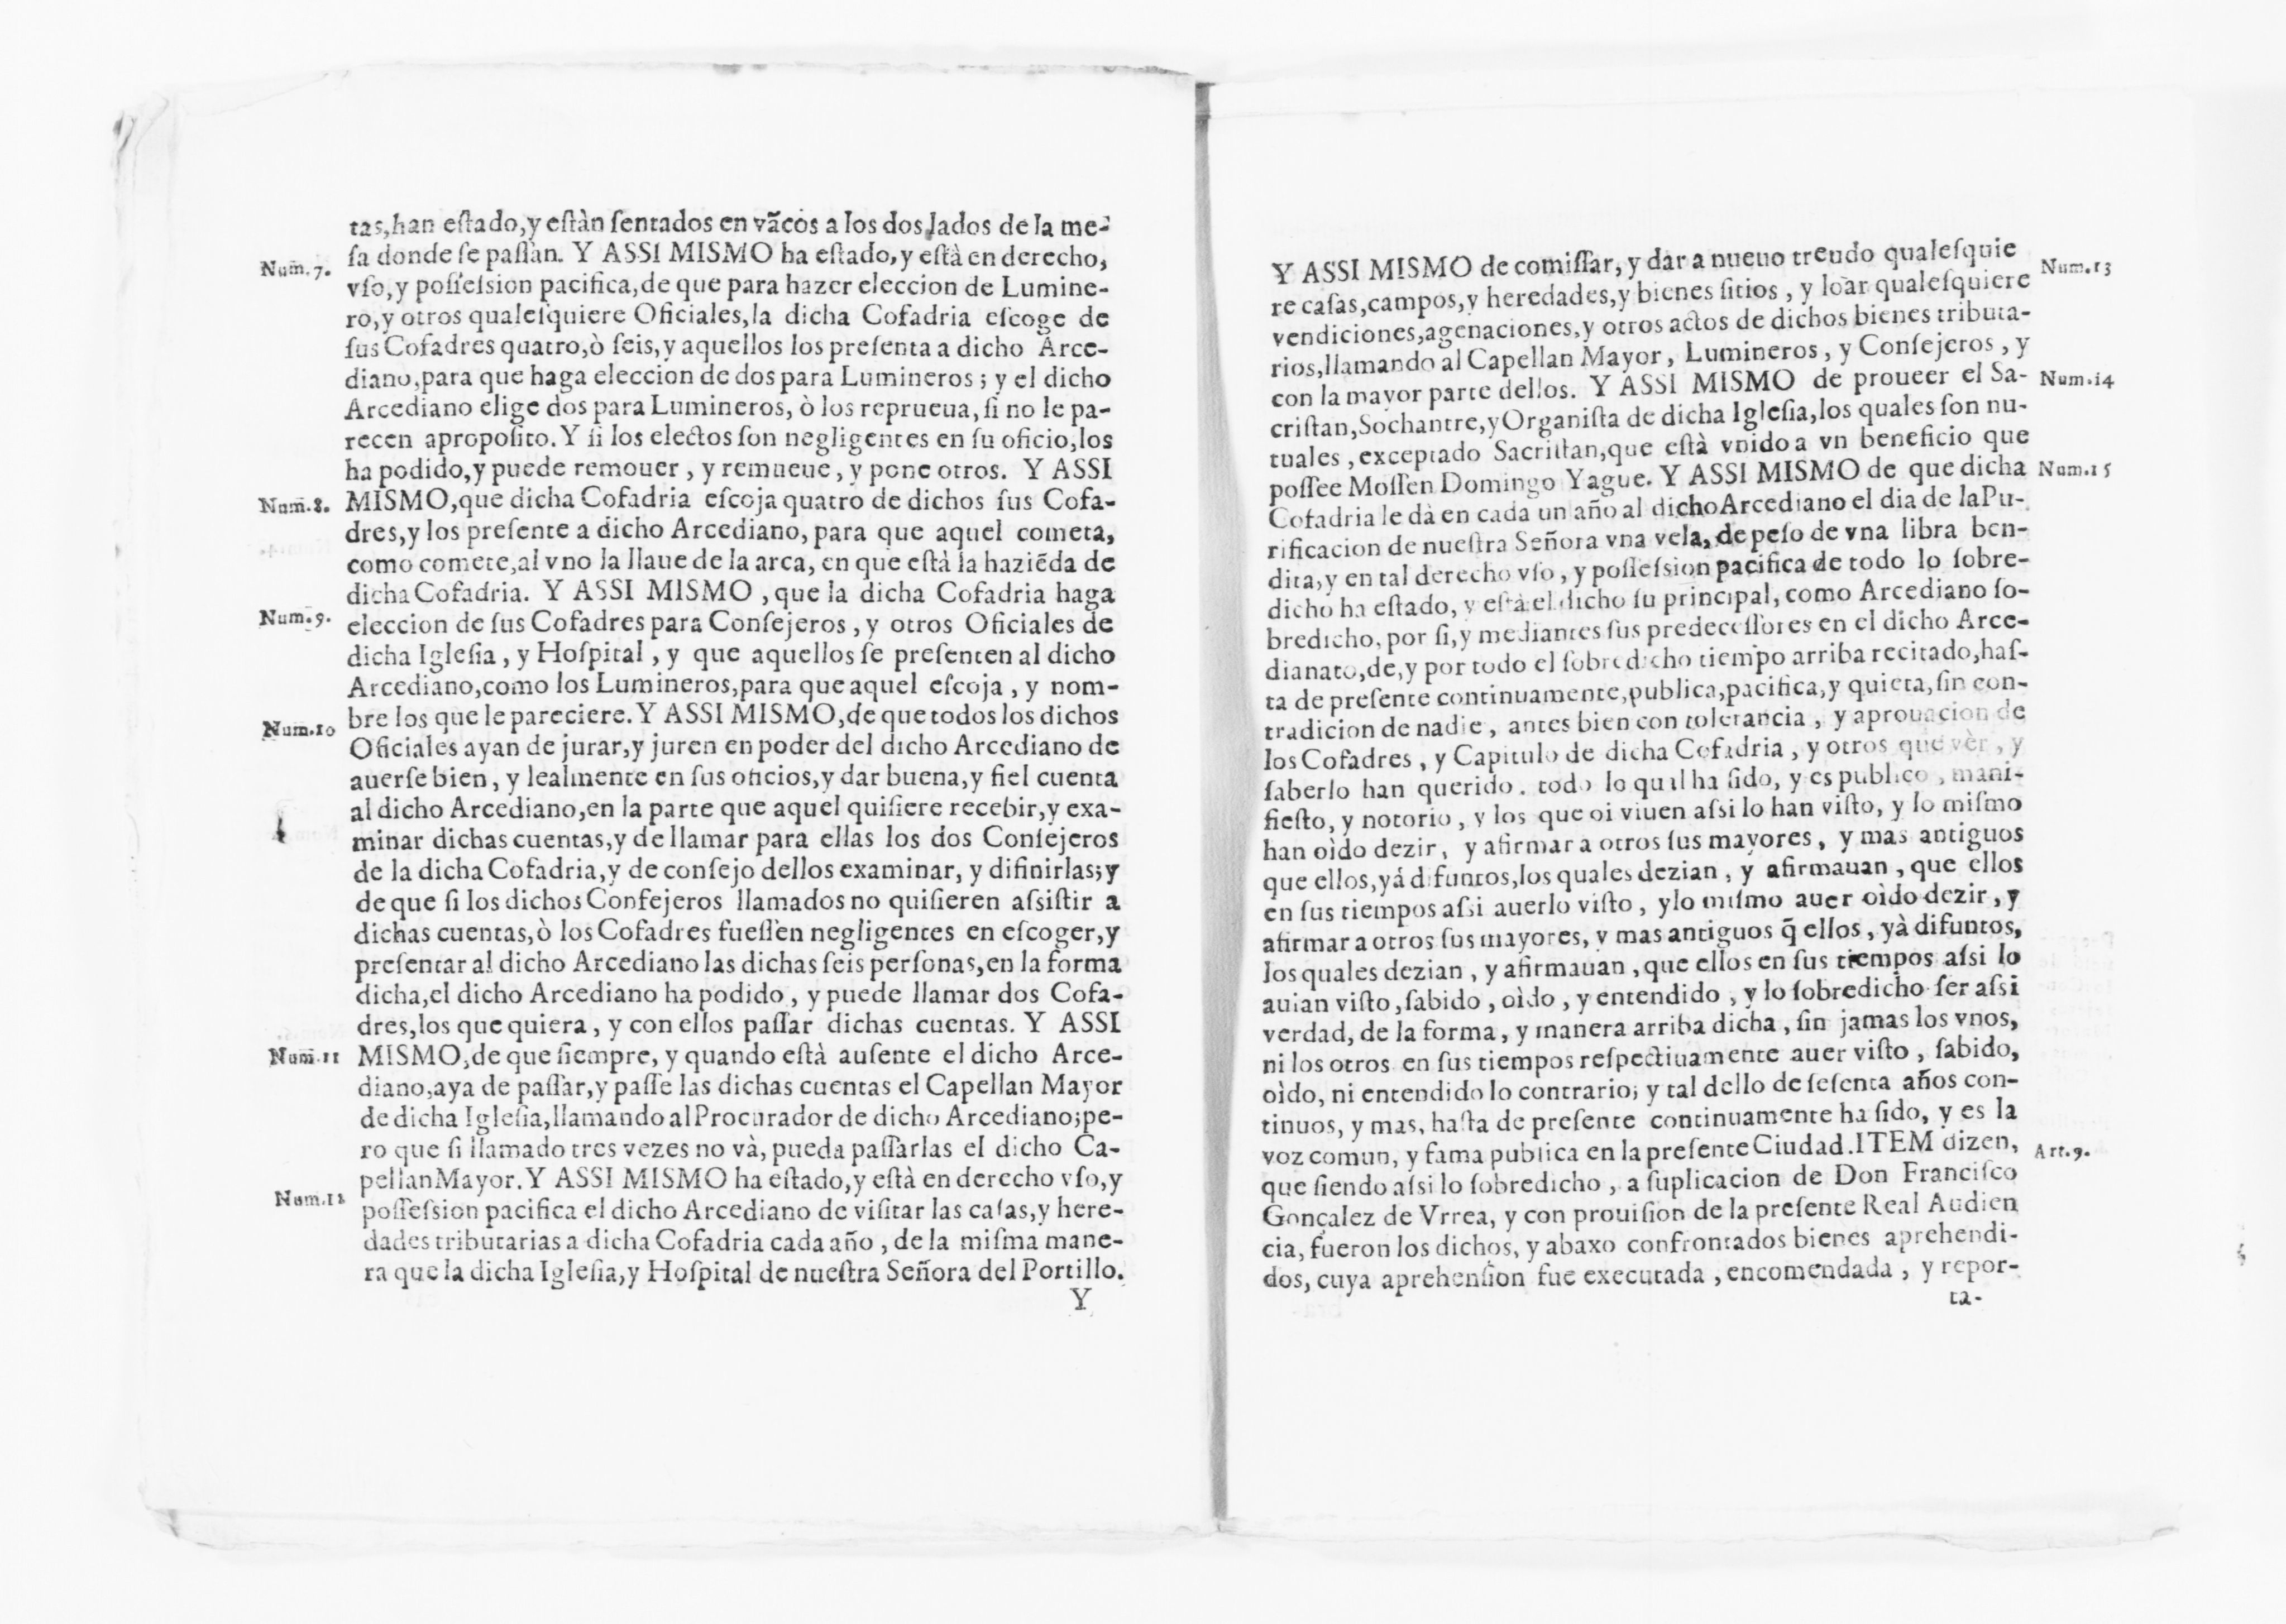 tas,han eſtado,y eſtàn ſentados en vãcos a los dos lados de la me-
Num.7. ſa donde ſe paſſan. Y ASSI MISMO ha eſtado,y eſtà en derecho,
vſo,y poſſeſsion pacifica,de que para hazer eleccion de Lumine-
ro,y otros qualeſquiere Oficiales,la dicha Cofadria eſcoge de
ſus Cofadres quatro,ò ſeis,y aquellos los preſenta a dicho Arce-
diano,para que haga eleccion de dos para Lumineros; y el dicho
Arcediano elige dos para Lumineros, ò los reprueua, ſi no le pa-
recen apropoſito. Y ſi los electos ſon negligentes en ſu oficio,los
ha podido,y puede remouer, y remueue, y pone otros. Y ASSI
Num.8. MISMO,que dicha Cofadria eſcoja quatro de dichos ſus Cofa-
dres,y los preſente a dicho Arcediano, para que aquel cometa,
como comete,al vno la llaue de la arca, en que eſtà la haziẽda de
dicha Cofadria. Y ASSI MISMO, que la dicha Cofadria haga
Num.9. eleccion de ſus Cofadres para Conſejeros, y otros Oficiales de
dicha Igleſia, y Hoſpital, y que aquellos ſe preſenten al dicho
Arcediano,como los Lumineros,para que aquel eſcoja, y nom-
bre los que le pareciere. Y ASSI MISMO,de que todos los dichos
Num.10 Oficiales ayan de jurar,y juren en poder del dicho Arcediano de
auerſe bien, y lealmente en ſus oficios,y dar buena,y fiel cuenta
al dicho Arcediano,en la parte que aquel quiſiere recebir,y exa-
minar dichas cuentas,y de llamar para ellas los dos Conſejeros
de la dicha Cofadria,y de conſejo dellos examinar, y difinirlas;y
de que ſi los dichos Conſejeros llamados no quiſieren aſsiſtir a
dichas cuentas,ò los Cofadres fueſſen negligentes en eſcoger,y
preſentar al dicho Arcediano las dichas ſeis perſonas,en la forma
dicha,el dicho Arcediano ha podido, y puede llamar dos Cofa-
dres,los que quiera, y con ellos paſſar dichas cuentas. Y ASSI
Num.11 MISMO,de que ſiempre, y quando eſtà auſente el dicho Arce-
diano,aya de paſſar,y paſſe las dichas cuentas el Capellan Mayor
de dicha Igleſia,llamando al Procurador de dicho Arcediano;pe-
ro que ſi llamado tres vezes no và, pueda paſſarlas el dicho Ca-
pellan Mayor. Y ASSI MISMO ha eſtado,y eſtà en derecho vſo,y
Num.12 poſſeſsion pacifica el dicho Arcediano de viſitar las caſas,y here-
dades tributarias a dicha Cofadria cada año, de la miſma mane-
ra que la dicha Igleſia,y Hoſpital de nueſtra Señora del Portillo.
Y
Y ASSI MISMO de comiſſar, y dar a nueuo treudo qualeſquie Num.13
re caſas,campos,y heredades,y bienes ſitios, y loàr qualeſquiere
vendiciones,agenaciones,y otros actos de dichos bienes tributa-
rios,llamando al Capellan Mayor, Lumineros, y Conſejeros, y
con la mayor parte dellos. Y ASSI MISMO de proueer el Sa- Num.14
criſtan,Sochantre,y Organiſta de dicha Igleſia,los quales ſon nu-
tuales, exceptado Sacriſtan,que eſtà vnido a vn beneficio que
poſſee Moſſen Domingo Yague. Y ASSI MISMO de que dicha Num.15
Cofadria le dà en cada un año al dicho Arcediano el dia de la Pu-
rificacion de nueſtra Señora vna vela, de peſo de vna libra ben-
dita,y en tal derecho vſo, y poſſeſsion pacifica de todo lo ſobre-
dicho ha eſtado, y eſtà el dicho ſu principal, como Arcediano ſo-
bredicho, por ſi,y mediantes ſus predeceſſores en el dicho Arce-
dianato,de,y por todo el ſobredicho tiempo arriba recitado,haſ-
ta de preſente continuamente,publica,pacifica,y quieta,ſin con-
tradicion de nadie, antes bien con tolerancia, y aprouacion de
los Cofadres, y Capitulo de dicha Cofadria, y otros que vèr, y
ſaberlo han querido. todo lo qual ha ſido, y es publico, mani-
fieſto, y notorio, y los que oi viuen aſsi lo han viſto, y lo miſmo
han oìdo dezir, y afirmar a otros ſus mayores, y mas antiguos
que ellos,yá difuntos,los quales dezian, y afirmauan, que ellos
en ſus tiempos aſsi auerlo viſto, y lo miſmo auer oìdo dezir, y
afirmar a otros ſus mayores, y mas antiguos q̃ ellos, yà difuntos,
los quales dezian, y afirmauan, que ellos en ſus tiempos aſsi lo
auian viſto, ſabido, oìdo, y entendido, y lo ſobredicho ſer aſsi
verdad, de la forma, y manera arriba dicha, ſin jamas los vnos,
ni los otros en ſus tiempos reſpectiuamente auer viſto, ſabido,
oìdo, ni entendido lo contrario; y tal dello de ſeſenta años con-
tinuos, y mas, haſta de preſente continuamente ha ſido, y es la
voz comun, y fama publica en la preſente Ciudad. ITEM dizen, Art.9.
que ſiendo aſsi lo ſobredicho, a ſuplicacion de Don Franciſco
Gonçalez de Vrrea, y con prouiſion de la preſente Real Audien
cia, fueron los dichos, y abaxo confrontados bienes aprehendi-
dos, cuya aprehenſion fue executada, encomendada, y repor-
ta-